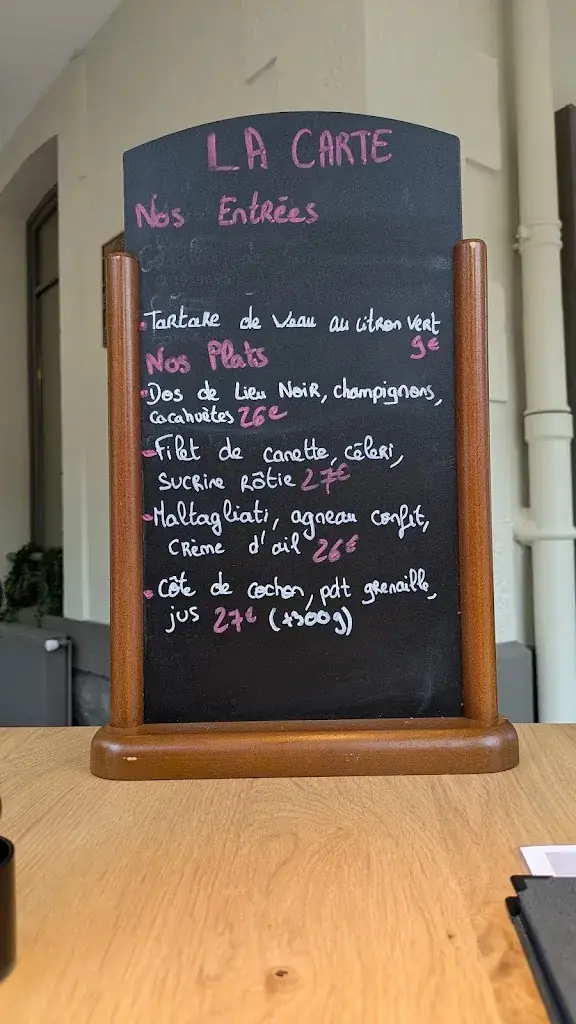 LA CARTE
Nos Entrées
• Tartare de Veau au citron vert
9€
Nos Plats
• Dos de Lieu Noir, champignons,
cacahuètes 26€
• Filet de canette, céleri,
sucrine rôtie 27€
• Maltagliati, agneau confit,
crème d'ail 26€
• Côte de cochon, pdt grenaille,
jus 27€ (+300g)